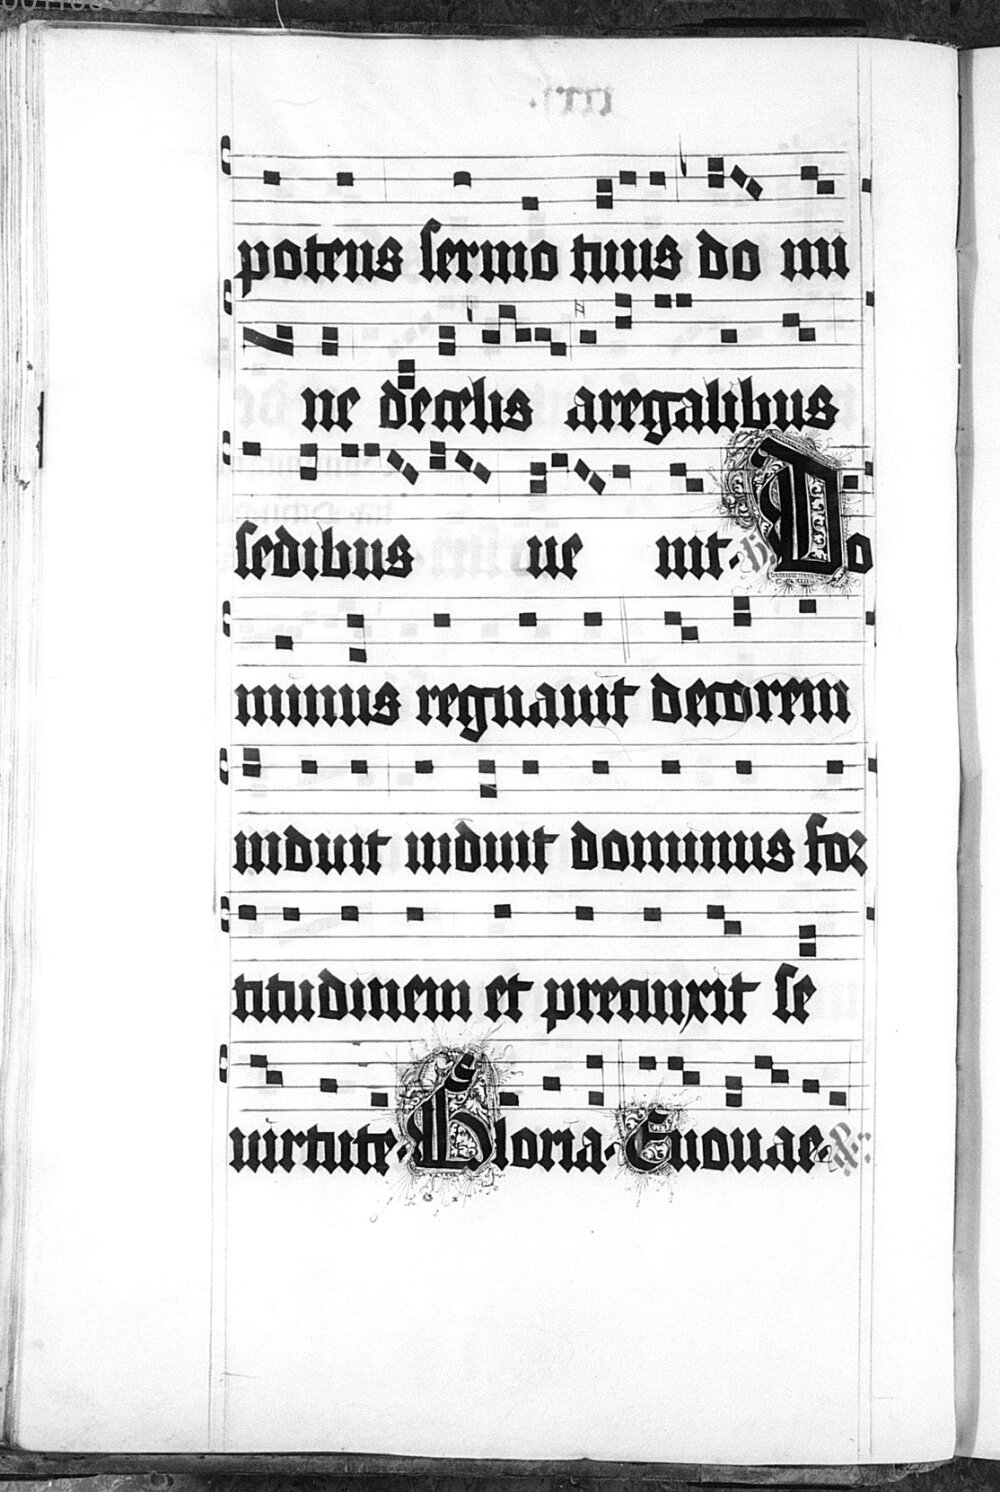 potens sermo tuus do mi
ne decelis aregalibus
sedibus ue nit. Do
minus regnauit decorem
induit induit dominus for
titudinem et precinxit se
uirtute. Gloria. Euouae.